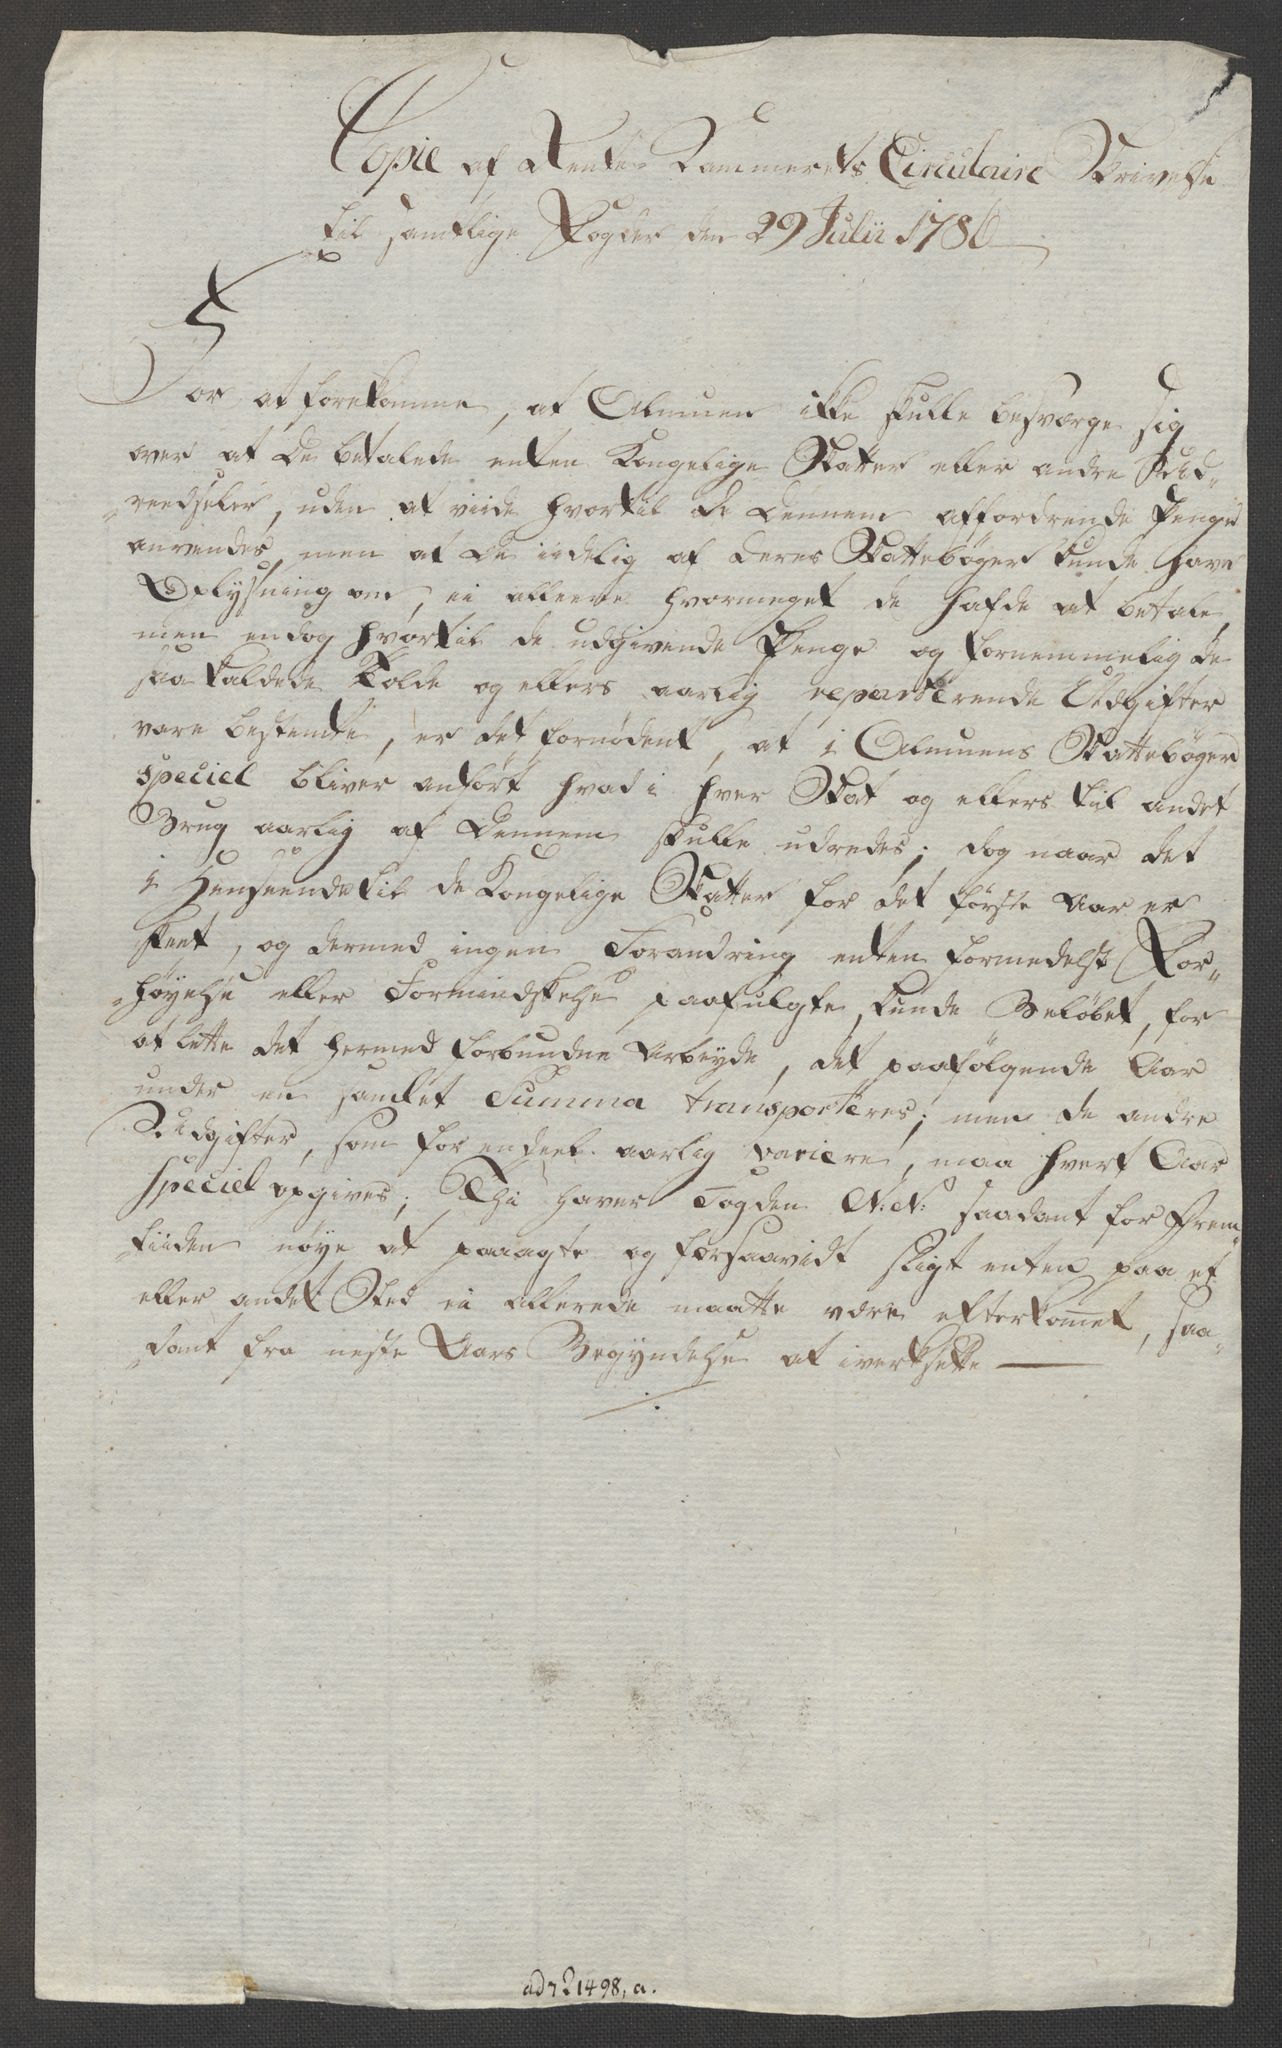 Copie af Rente Kammerets Circulaire Skrivelse
til samtlige Fogder den 29 Julii 1786
For at forekomme, at Almuen ikke skulle besværge sig
over at de betalede enten Kongelige Skatter eller andre Ud-
reedseler, uden at viide hvortil de dennem affordrende Penge
anvendes, men at de tidelig af deres Skattebøger kunde have
Oplysning om, ei alleene hvormeget de hafde at betale,
men endog hvortil de udgivende Penge og fornemmelig de
saa kaldede Tolde og ellers aarlig reparterende Udgifter
vare bestemte, er det fornødent, at i Almuens Skattebøger
speciel bliver anført hvad i hver Skat og ellers til andet
Brug aarlig af dennem skulle udredes; dog naar det
i Henseende til de Kongelige Skatter for det første Aar er
skeet, og dermed ingen Forandring enten formedelst For-
høyelse eller Formindskelse paafulgte, kunde Beløbet, for
at lette det hermed forbundne Arbeyde, det paafølgende Aar
under en samlet Summa transporteres; men de andre
Udgifter, som for endeel aarlig variere, maa hvert Aar
speciel opgives; Thi haver Fogden N: N: saadant for Frem-
tiiden nøye at paaagte og forsaavidt sligt enten paa et
eller andet Sted ei allerede maatte være efterkomet, saa-
dant fra neste Aars Begyndelse at iverksette
ad 21498, a.